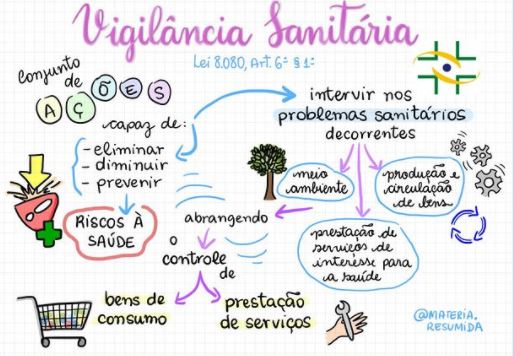 Vigilância Sanitária
Lei 8.080, Art. 6º § 1º
conjunto
de
AÇÕES
capaz de:
- eliminar
- diminuir
- prevenir
RISCOS À
SAÚDE
intervir nos
problemas sanitários
decorrentes
meio
ambiente
produção e
circulação
de bens
prestação de
serviços de
interesse para
a saúde
abrangendo
o
controle
de
bens de
consumo
prestação
de serviços
@MATERIA.
RESUMIDA